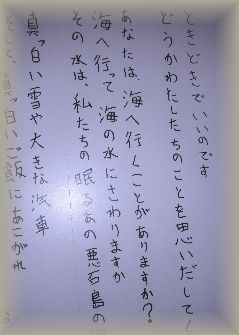 ときどきでいいのです
どうかわたしたちのことを思いだして
あなたは、海へ行くことがありますか?
海へ行って海の水にさわりますか
その水は、私たちの眠るあの悪石島の
真っ白い雪や大きな汽車
そして、真っ白いご飯にあこがれ